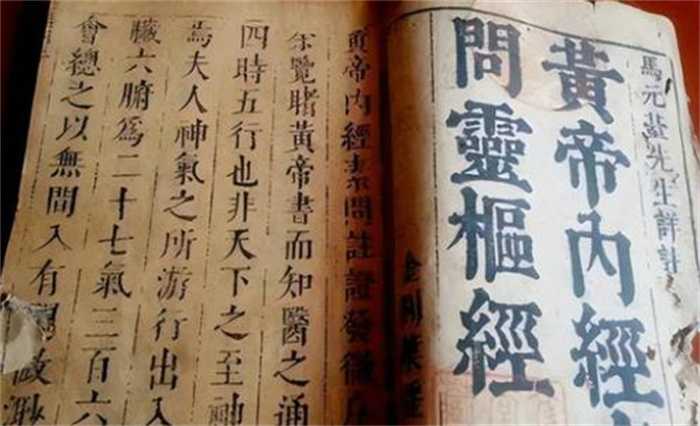 馬元臺先生詳註
黃帝內經
問靈樞經
金剛藥
黃帝內經素問註證發微序
余覽睹黃帝書而知醫之通
四時五行也非天下之至神
焉夫人神氣之所游行出入
臟六腑爲二十七氣三百六
會總之以無間入有